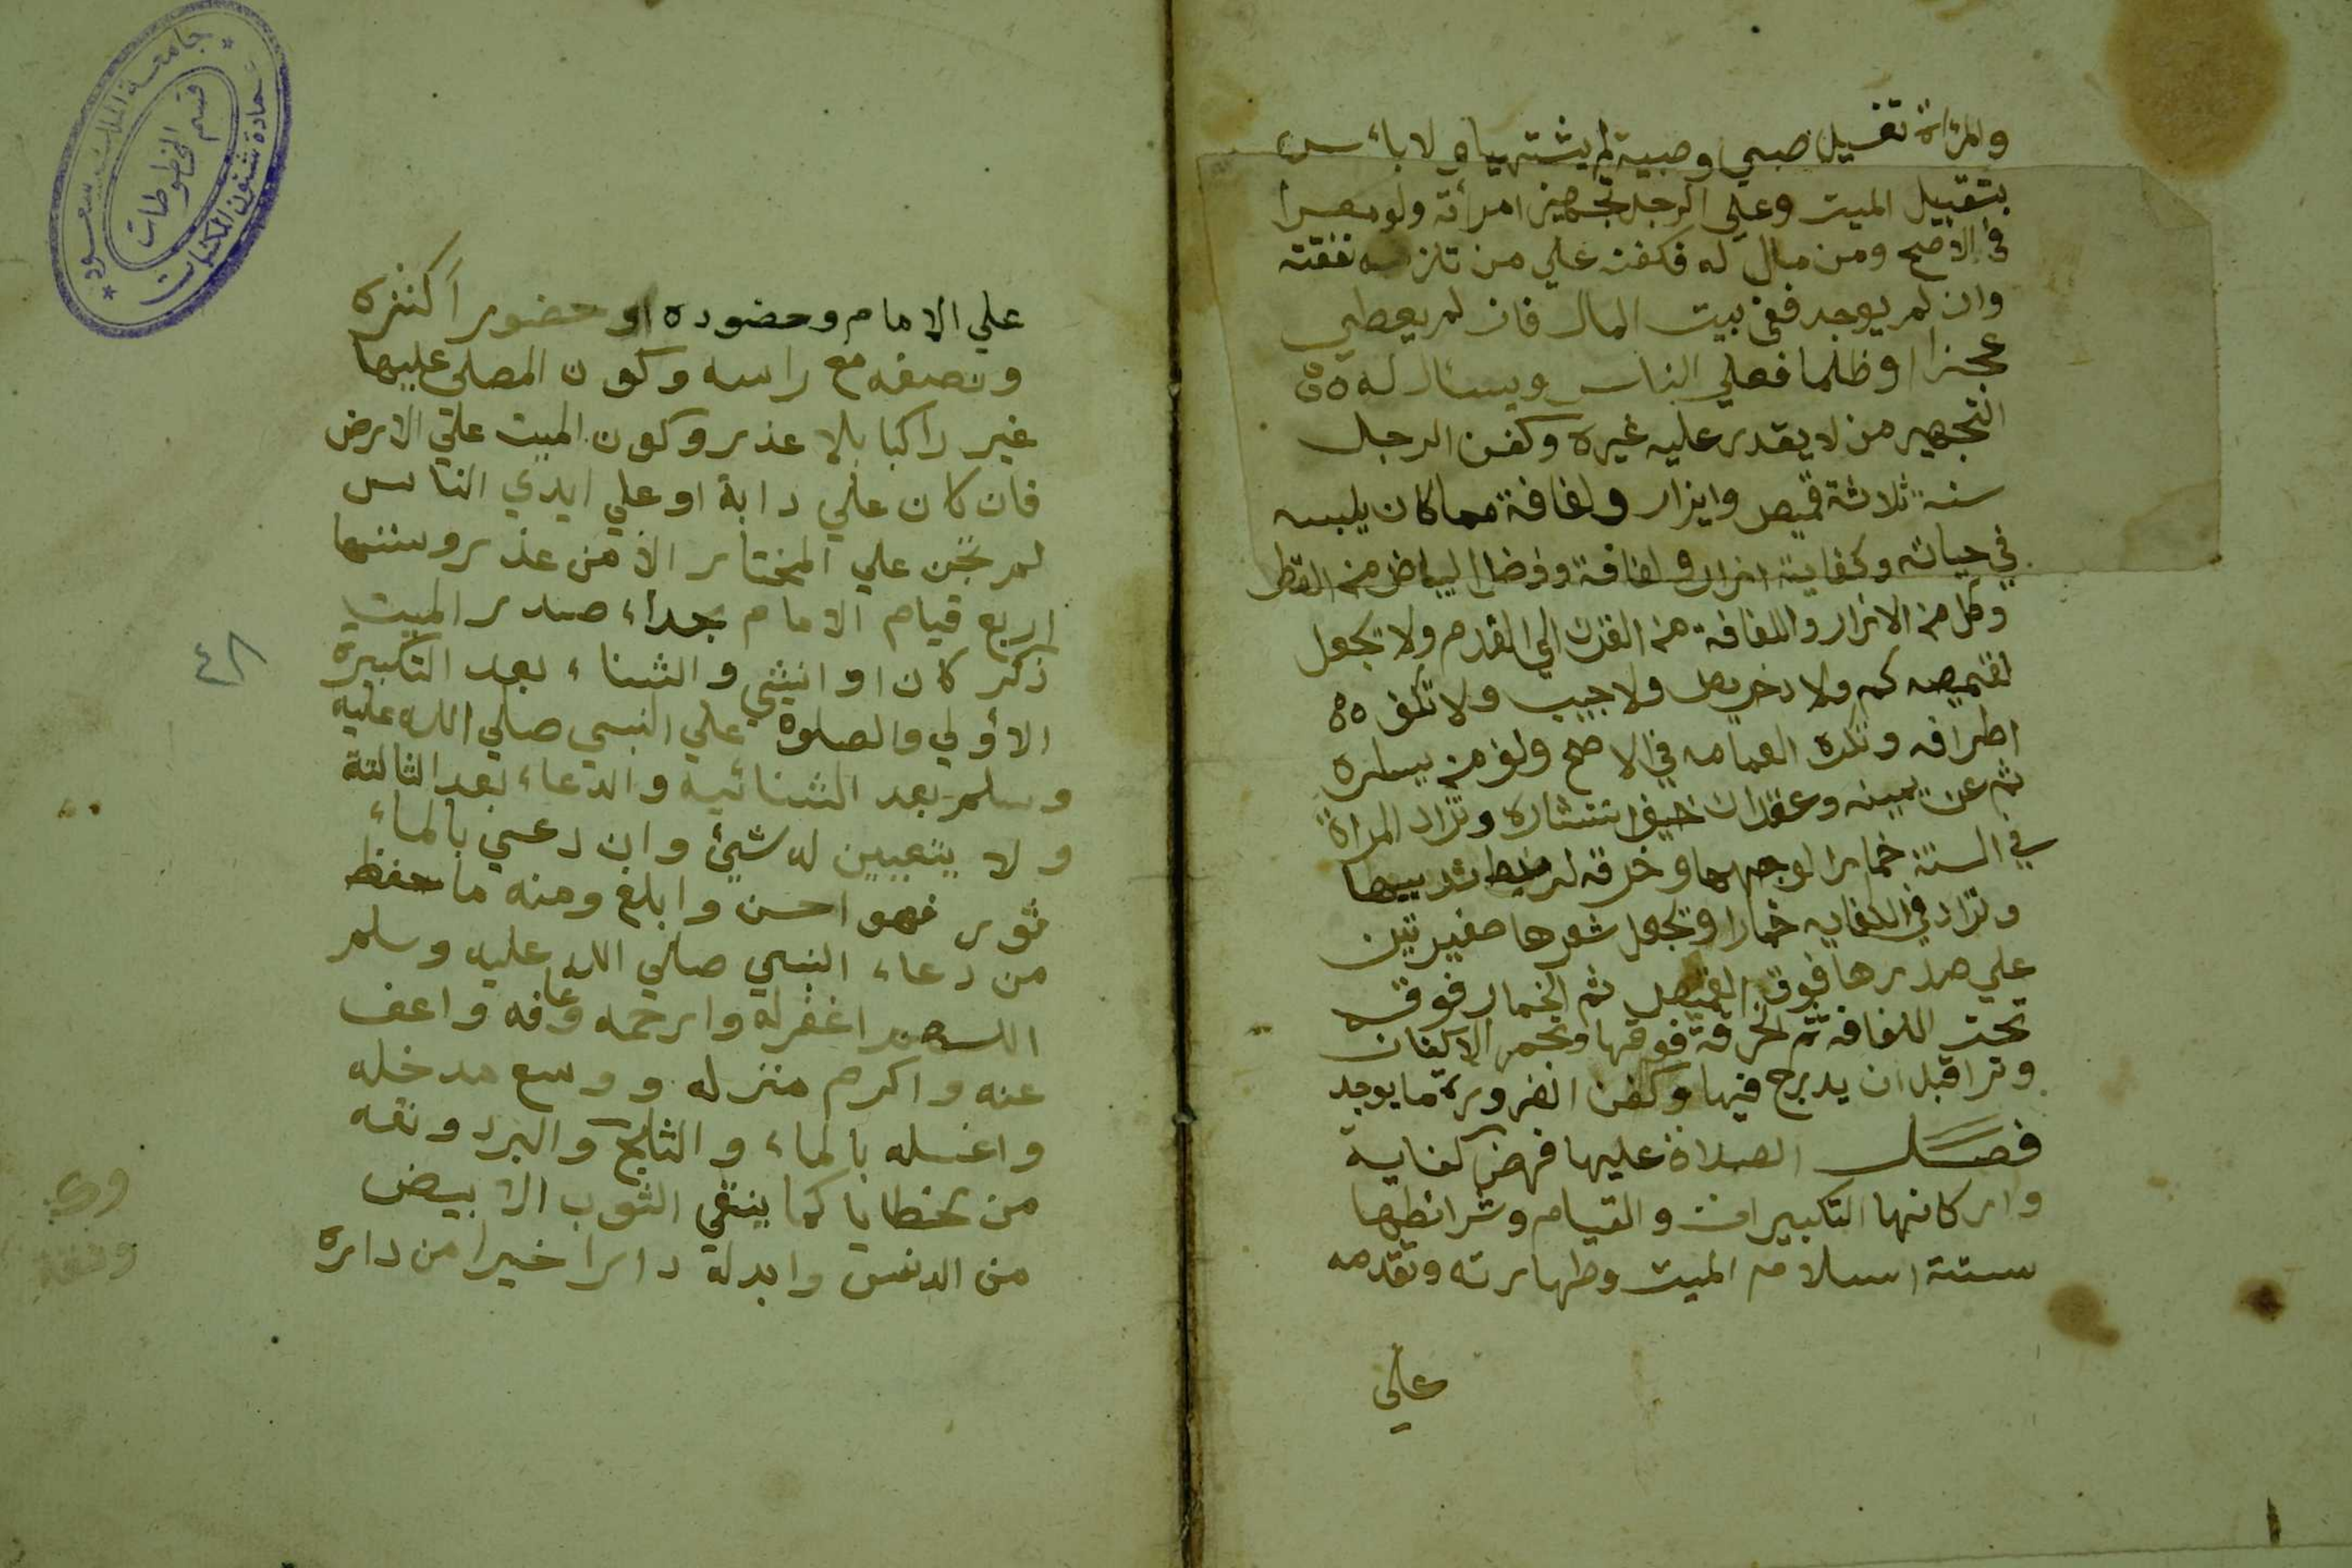 والمرءاة تغسيل صبي وصبية لم يشتهياه ولا باءس
بتقبيل الميت وعلي الرجل تجهيز امرأته ولو معسرا
في الاصح ومن مال له فكفنه علي من تلزمه نفقته
وان لم يوجد ففي بيت المال فان لم يعطي
عجزا او ظلما فعلي الناس ويسال له
التجهيز من لا يقدر عليه غيره وكفن الرجل
سنة ثلاثة قميص وايزار ولفافة مما كان يلبسه
في حياته وكفاية ازار ولفافة وفضل البياض من القطن
وكل من الازار واللفافة من القرن الي القدم ولا تجعل
لقميصه كم ولا دخريص ولا جيب ولا تكف
اطرافه وتكره العمامه في الاصح ولف من يساره
ثم عن يمينه وعقد ان خيف انتشاره وتزاد المراة
في السنة خمارا لوجهها وخرقه لربط ثدييها
وتزاد في الكفايه خمارا وتجعل شعرها ضفيرتين
علي صدرها فوق القميص ثم الخمار فوقه
تحت اللفافه ثم الخرقة فوقها وتجمر الاكفان
وترا قبل ان يدرج فيها وكفن الضرورة ما يوجد
فصل الصلاة عليها فرض كفاية
واركانها التكبيرات والقيام وشرائطها
ستة اسلام الميت وطهارته وتقدمه
علي
علي الامام وحضوره او حضور اكثره
ونصفه مع راسه وكون المصلي عليها
غير راكبا بلا عذر وكون الميت علي الارض
فان كان علي دابة او علي ايدي الناس
لم تجز علي المختار الا من عذر وسننها
اربع قيام الامام بحداء صدر الميت
ذكر كان او انثي والثناء بعد التكبيرة
الاولي والصلوة علي النبي صلي الله عليه
وسلم بعد الثنائيه والدعاء بعد الثالثة
ولا يتعيين له شيئ وان دعي بالماء
ثور فهو احسن وابلغ ومنه ما حفظ
من دعاء النبي صلي الله عليه وسلم
اللهم اغفرله وارحمه وعافه واعف
عنه واكرم منزله ووسع مدخله
واغسله بالماء والثلج والبرد ونقه
من لخطايا كما ينقي الثوب الابيض
من الدنس وابدله دارا خيرا من داره
٤٨
جامعة الملك سعود
عمادة شئون المكتبات
قسم المخطوطات